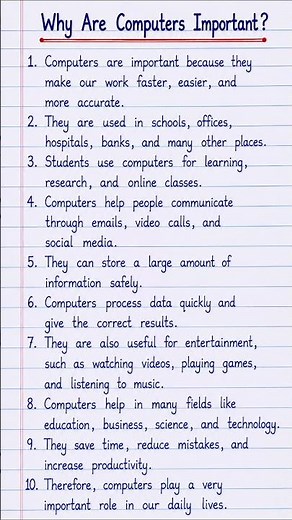 Why Are Computers Important?
1. Computers are important because they
make our work faster, easier, and
more accurate.
2. They are used in schools, offices,
hospitals, banks, and many other places.
3. Students use computers for learning,
research, and online classes.
4. Computers help people communicate
through emails, video calls, and
social media.
5. They can store a large amount of
information safely.
6. Computers process data quickly and
give the correct results.
7. They are also useful for entertainment,
such as watching videos, playing games,
and listening to music.
8. Computers help in many fields like
education, business, science, and technology.
9. They save time, reduce mistakes, and
increase productivity.
10. Therefore, computers play a very
important role in our daily lives.